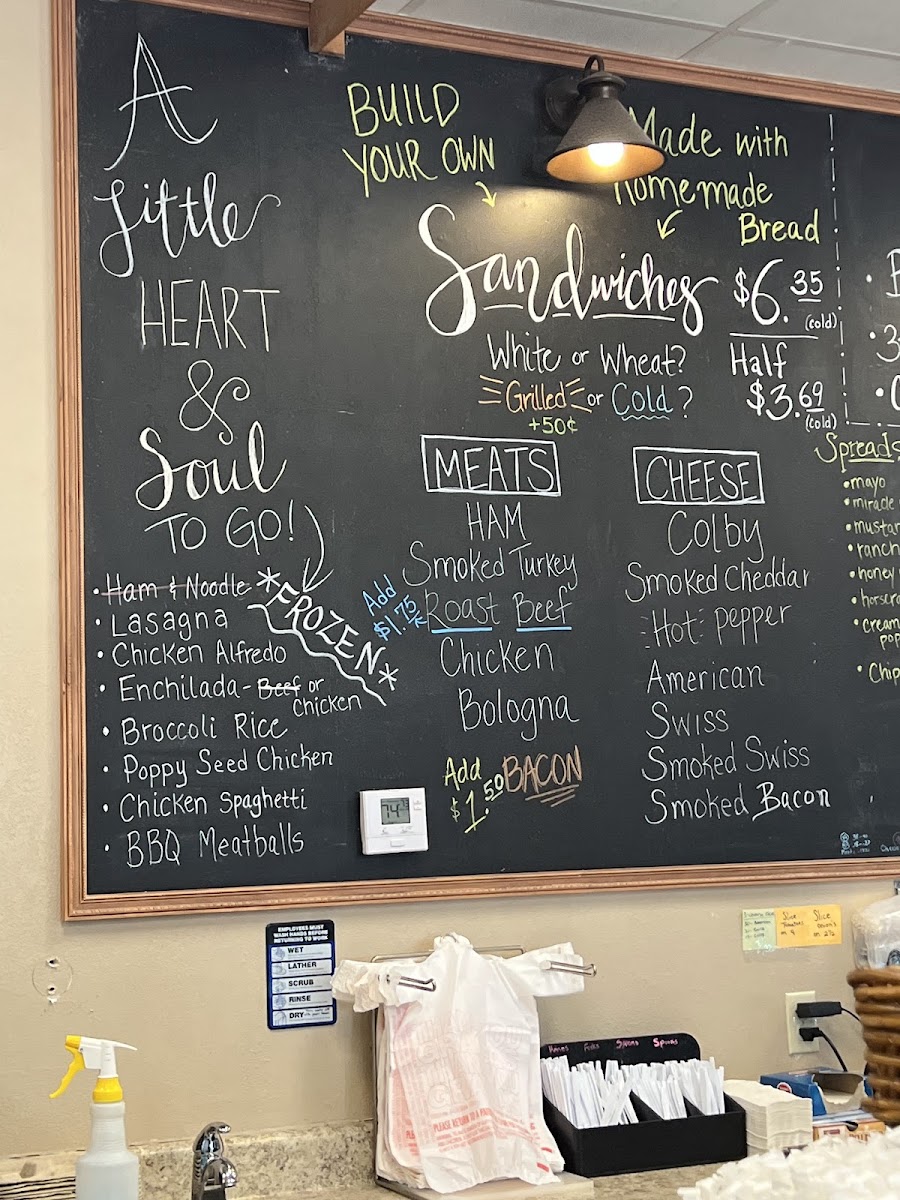 A
Little
HEART
&
Soul
TO GO!
*FROZEN*
• Ham & Noodle
• Lasagna
• Chicken Alfredo
• Enchilada - Beef or
Chicken
• Broccoli Rice
• Poppy Seed Chicken
• Chicken Spaghetti
• BBQ Meatballs
BUILD
YOUR OWN
Made with
Homemade
Bread
Sandwiches
$6.35
(cold)
Half
$3.69
(cold)
White or Wheat?
Grilled or Cold?
+50¢
MEATS
HAM
Smoked Turkey
Add
$1.75
Roast Beef
Chicken
Bologna
Add
$1.50
BACON
CHEESE
Colby
Smoked Cheddar
Hot pepper
American
Swiss
Smoked Swiss
Smoked Bacon
• 3
Spreads
• mayo
• miracle
• mustar
• ranch
• honey
• horsera
• cream
pop
• Chip
74
EMPLOYEES MUST
WASH HANDS BEFORE
RETURNING TO WORK
WET
LATHER
SCRUB
RINSE
DRY
Slice
Tomatoes
on 4
Slice
onion's
on 2½
Knives Forks Spoons Spoons
PLEASE RETURN TO A